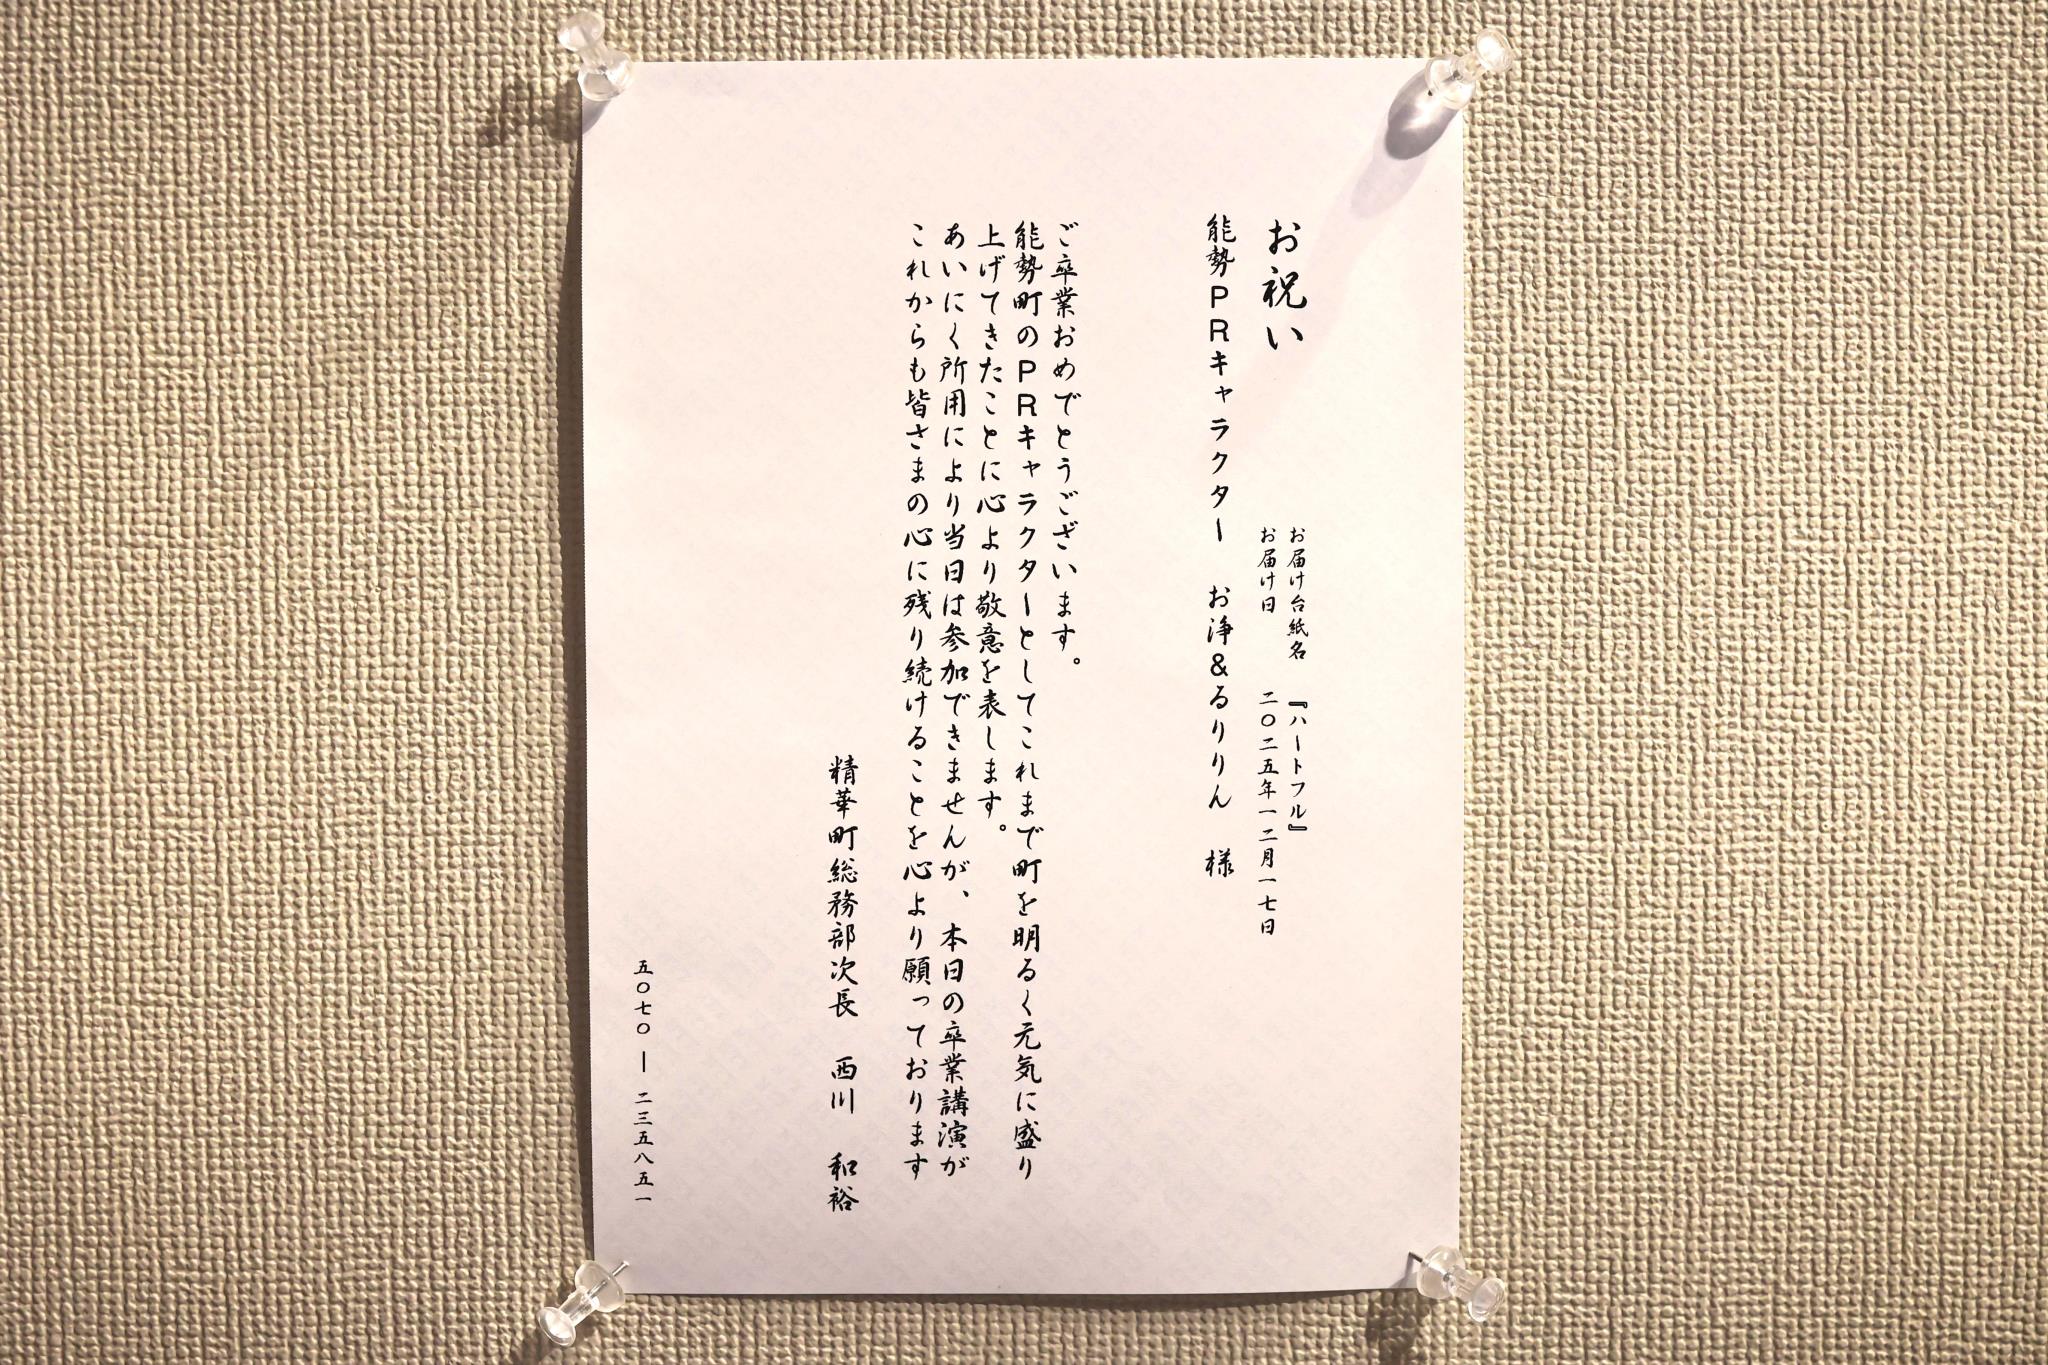 お祝い
お届け台紙名　『ハートフル』
お届け日　二〇二五年一二月一七日
能勢ＰＲキャラクター　お浄＆るりりん　様
ご卒業おめでとうございます。
能勢町のＰＲキャラクターとしてこれまで町を明るく元気に盛り
上げてきたことに心より敬意を表します。
あいにく所用により当日は参加できませんが、本日の卒業講演が
これからも皆さまの心に残り続けることを心より願っております
精華町総務部次長　西川　和裕
五〇七〇ー二三五八五一